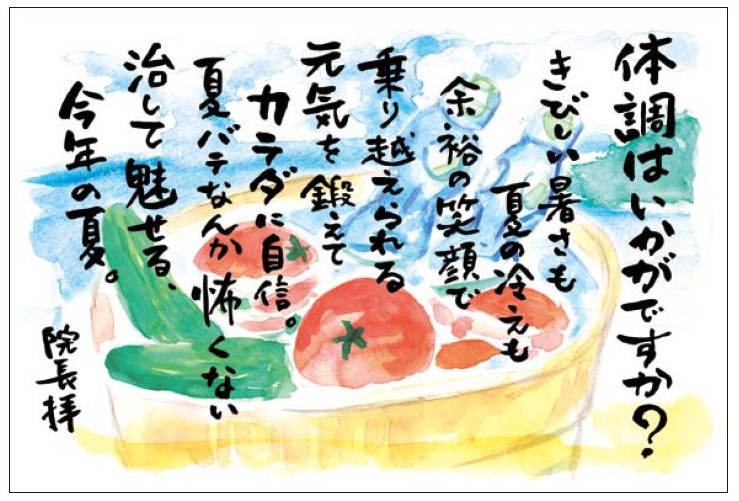 体調はいかがですか?
きびしい暑さも
夏の冷えも
余裕の笑顔で
乗り越えられる
元気を鍛えて
カラダに自信。
夏バテなんか怖くない
治して魅せる、
今年の夏。
院長拝